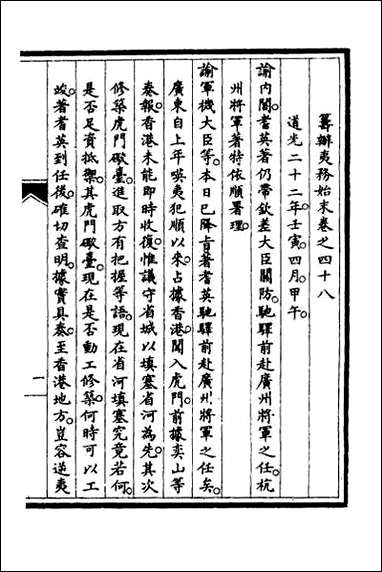 籌辦夷務始末卷之四十八
道光二十二年壬寅。四月。甲午。
諭內閣。耆英著仍帶欽差大臣關防。馳驛前赴廣州將軍之任。杭
州將軍著特依順署理。
諭軍機大臣等。本日已降旨著耆英馳驛前赴廣州將軍之任矣。
廣東自上年嘆夷犯順以來。占據香港。闖入虎門。前據奕山等
奏報。香港未能即時收復。惟議守省城以填塞省河為先。其次
修築虎門礮臺。進取方有把握等語。現在省河填塞究竟若何。
是否足資抵禦。其虎門礮臺。現在是否動工修築。何時可以工
竣。著耆英到任後。確切查明。據實具奏。至香港地方。豈容逆夷
一